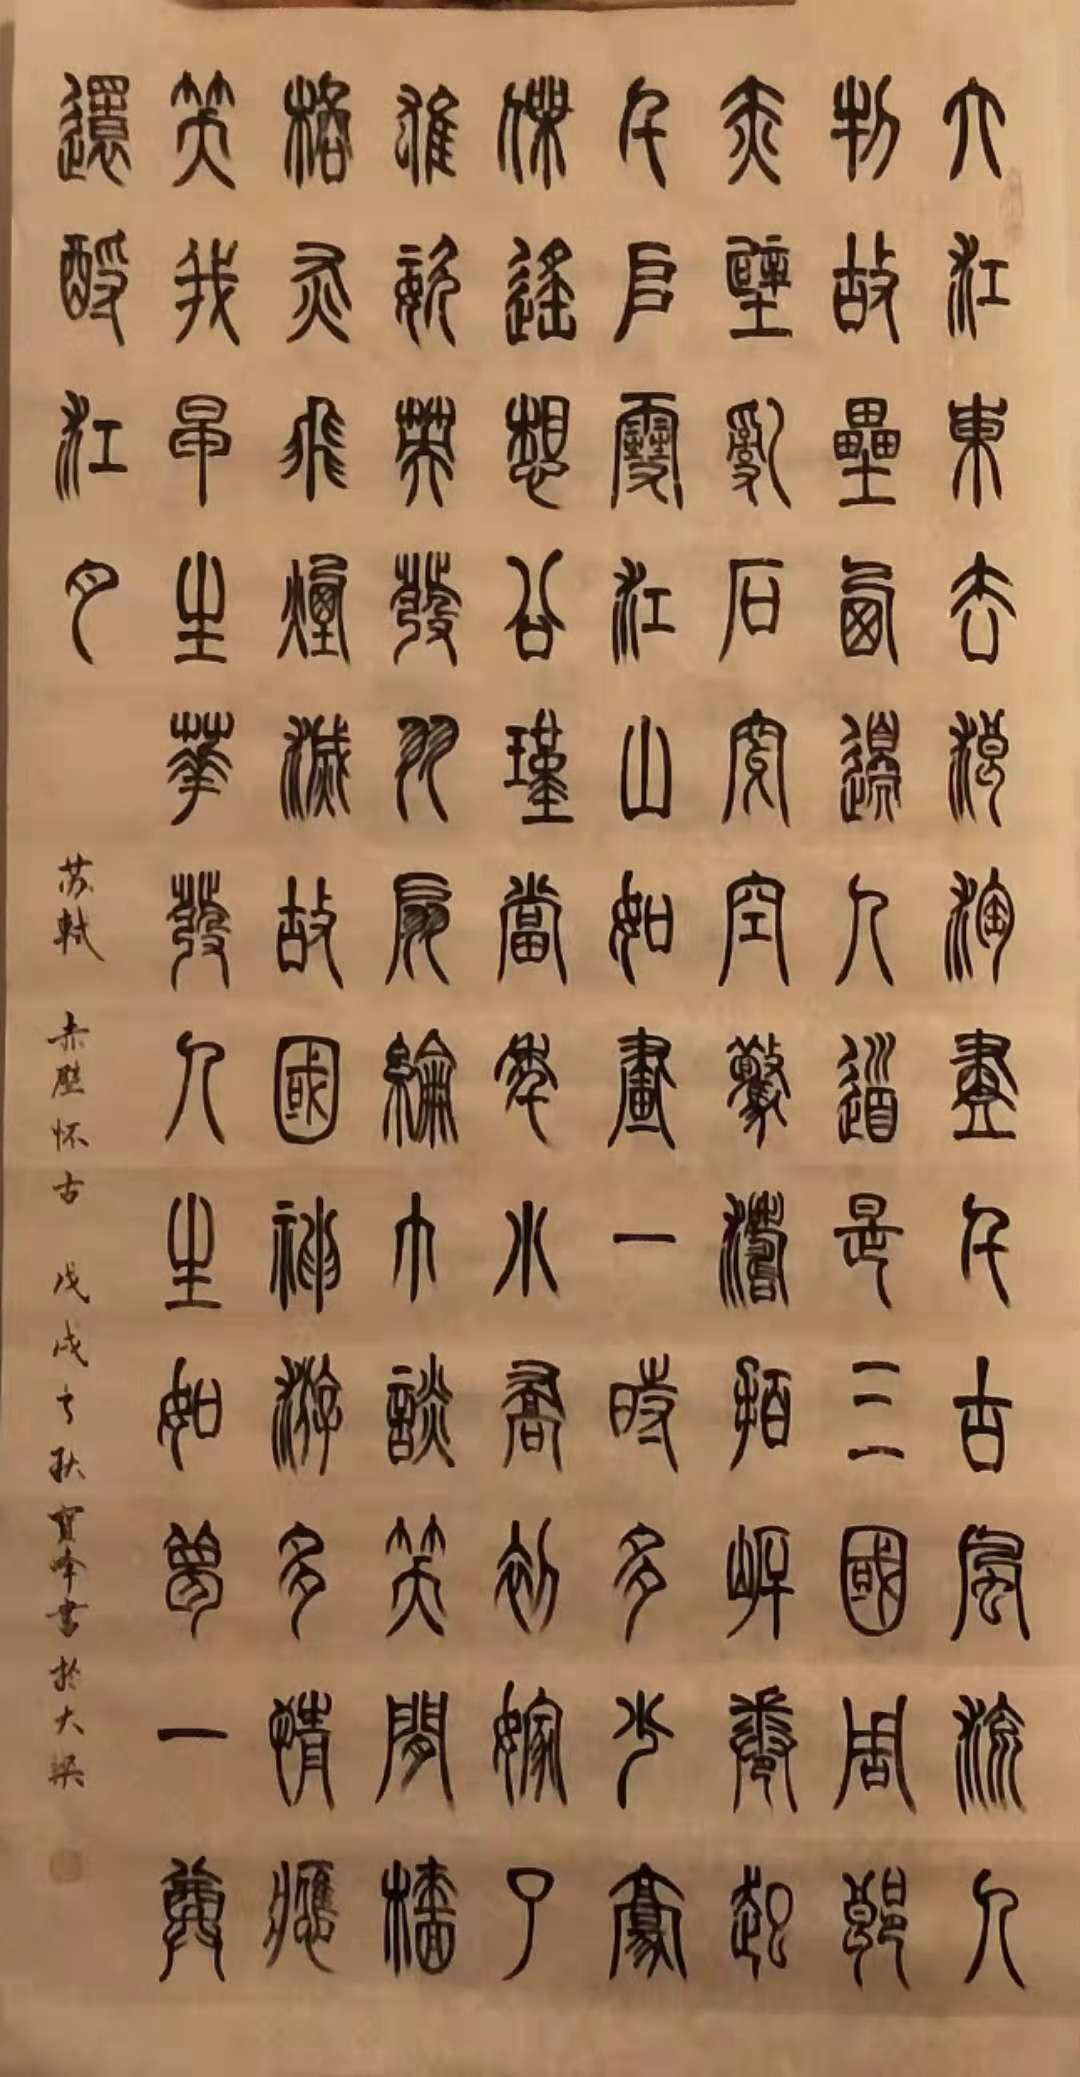 大江東去浪淘盡千古風流人
物故壘西邊人道是三國周郎
赤壁亂石穿空驚濤拍岸卷起
千堆雪江山如畫一時多少豪
傑遙想公瑾當年小喬初嫁了
雄姿英發羽扇綸巾談笑間檣
櫓灰飛煙滅故國神游多情應
笑我早生華發人生如夢一尊
還酹江月
苏轼 赤壁怀古 戊戌之秋寶峰书於大梁